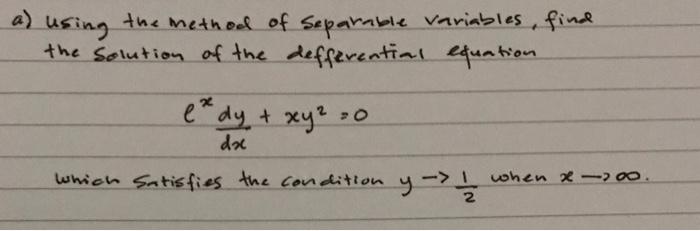 a) using the method of separable variables, find
the solution of the defferential equation
e^x dy/dx + xy² = 0
which satisfies the condition y → 1/2 when x → ∞.